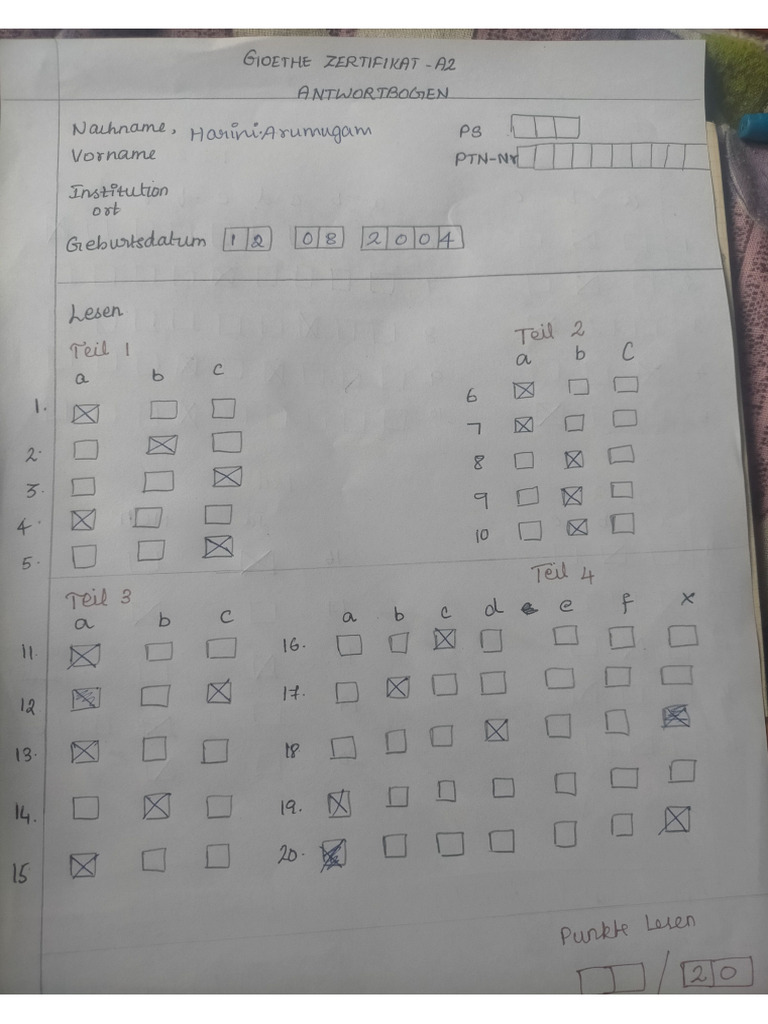 GOETHE ZERTIFIKAT - A2
ANTWORTBOGEN
Nachname, Harini.Arumugam
Vorname
PS
PTN-Nr
Institution
ort
Geburtsdatum 12 08 2004
Lesen
Teil 1
a b c
1.
2.
3.
4.
5.
Teil 2
a b c
6
7
8
9
10
Teil 3
a b c
11.
12
13.
14.
15
Teil 4
a b c d e f x
16.
17.
18
19.
20.
Punkte Lesen
/ 20